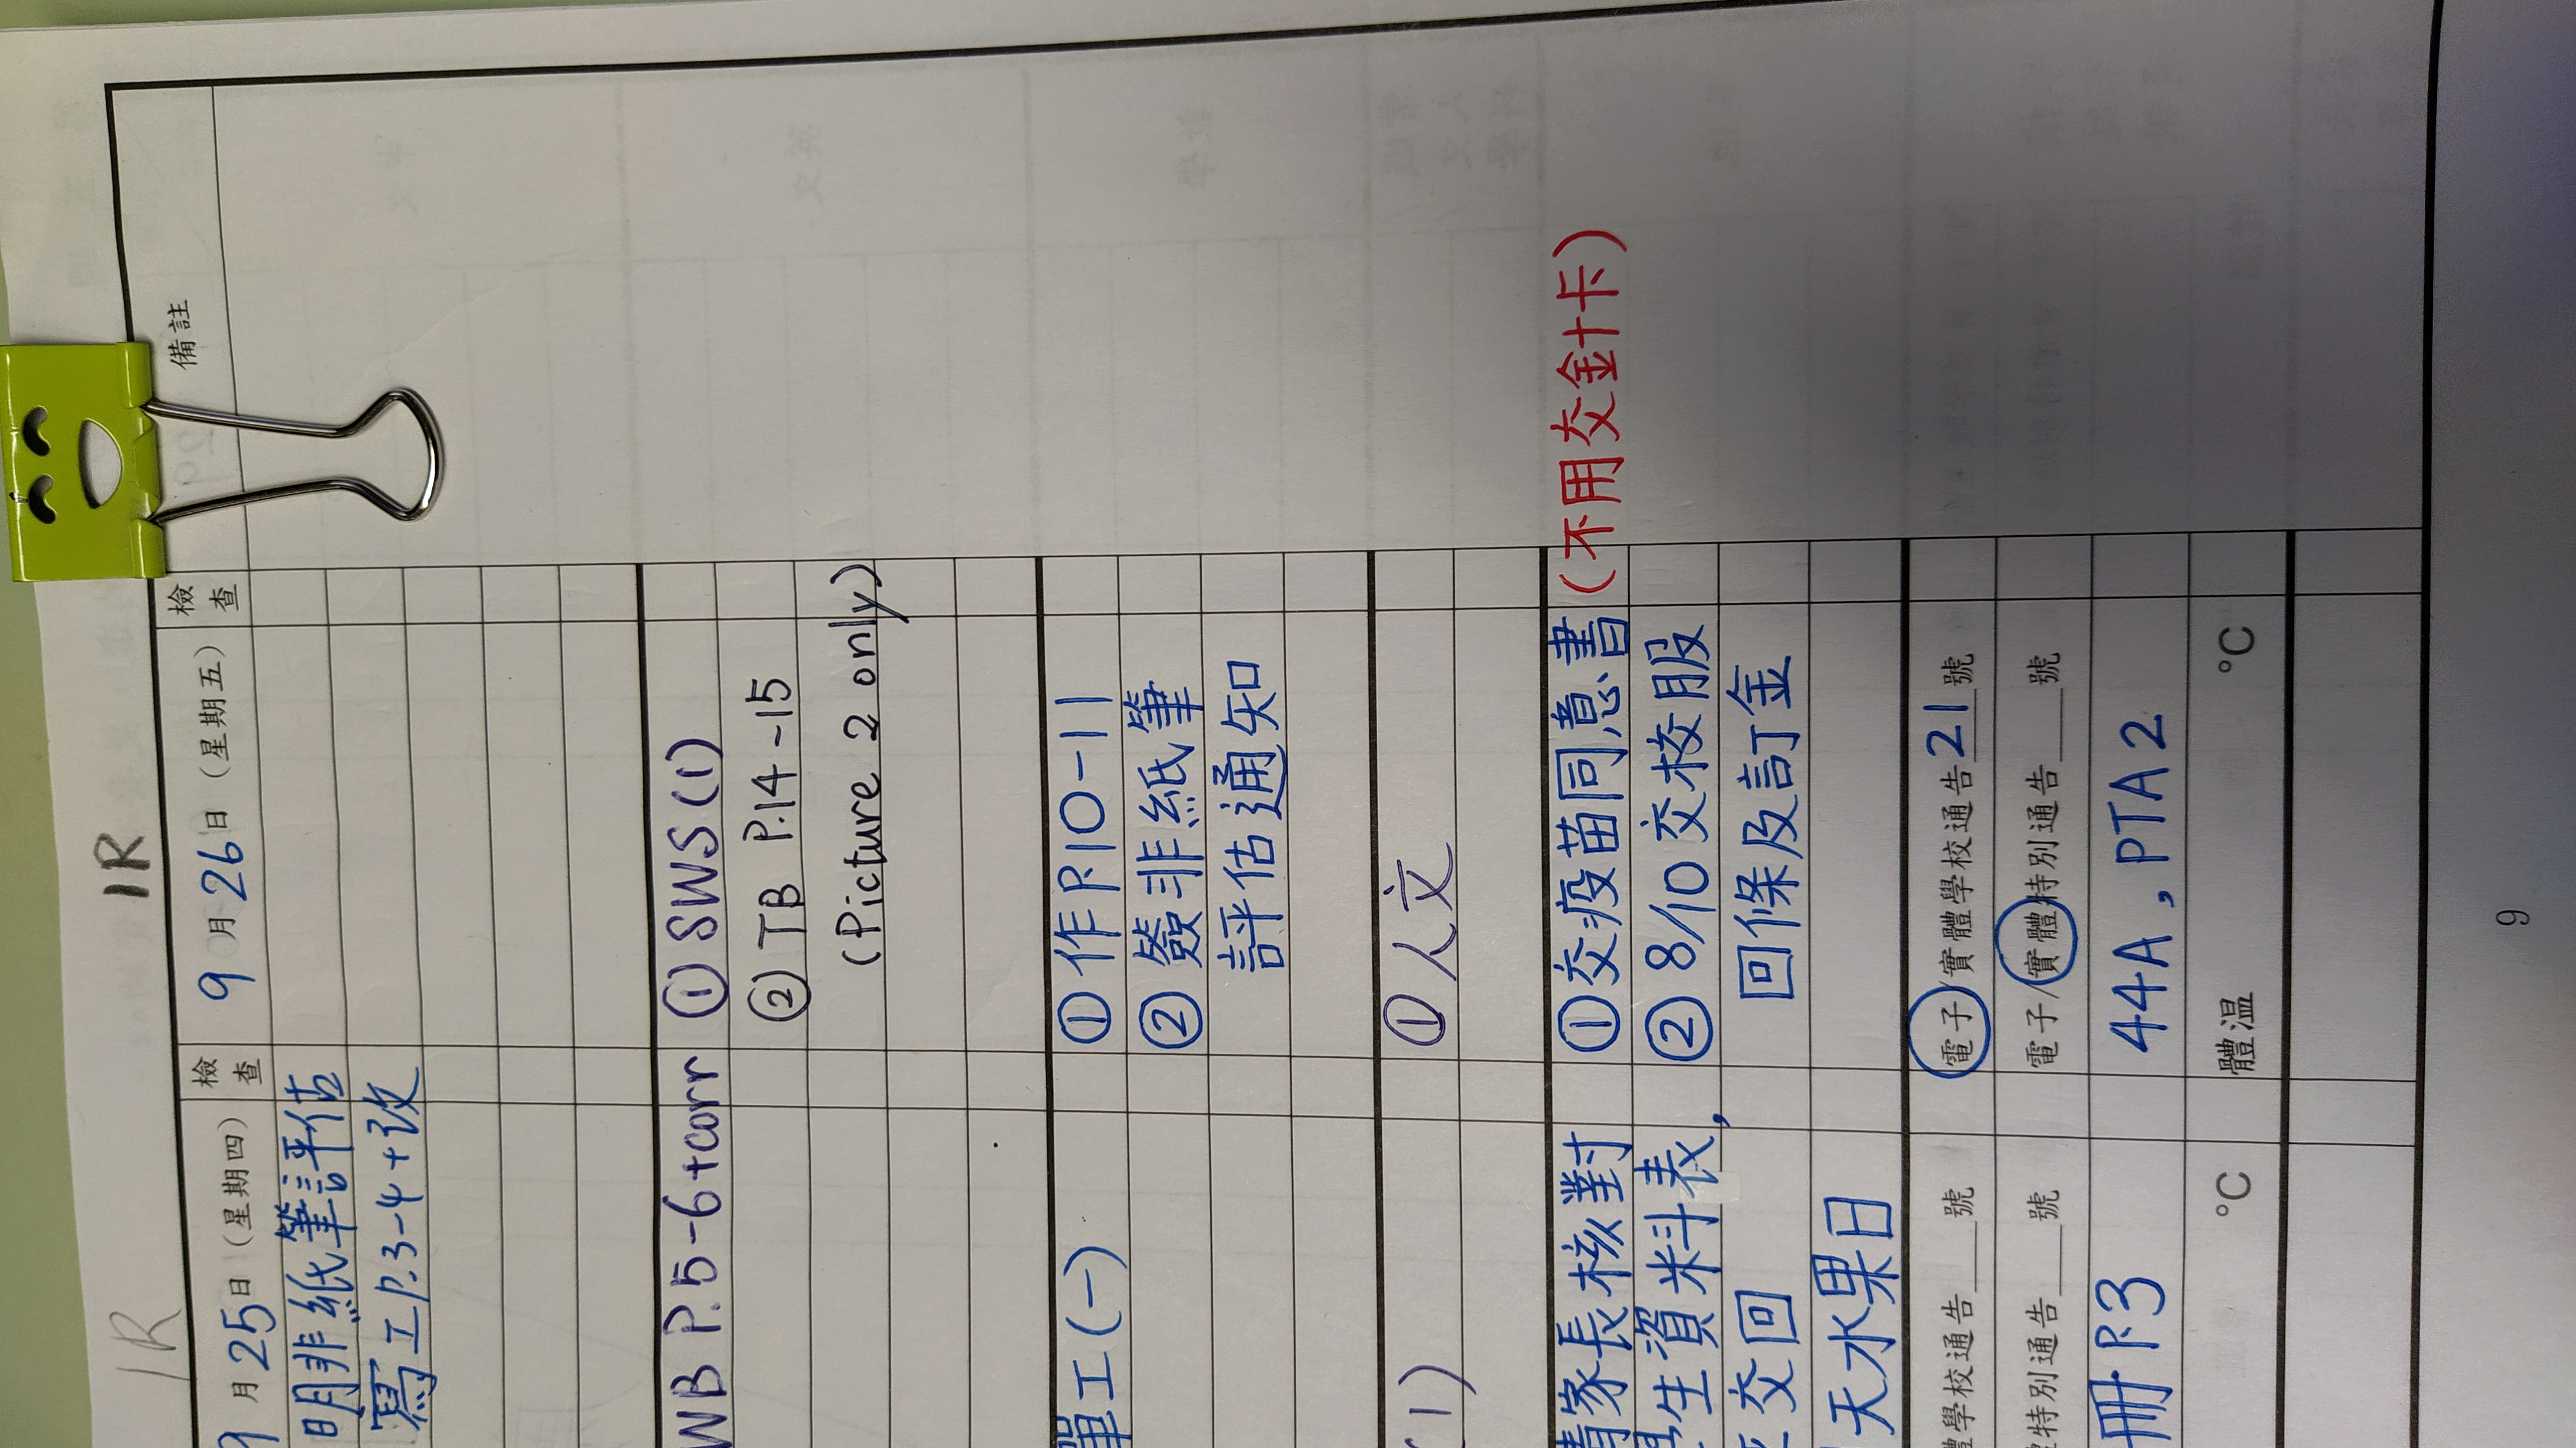 1R
1R
9月25日(星期四)
檢查
9月26日(星期五)
檢查
備註
明非紙筆評估
寫工P.3-4+改
WB P.5-6+corr
① SWS (1)
② TB P.14-15
(Picture 2 only)
單工(一)
① 作P.10-11
② 簽非紙筆
評估通知
1)
① 人文
請家長核對
生資料表,
交回
天水果日
① 交疫苗同意書(不用交金十卡)
② 8/10交校服
回條及訂金
學校通告___號
特別通告___號
冊P.3
°C
電子/實體學校通告21號
電子/實體特別通告___號
44A, PTA 2
體溫 °C
9